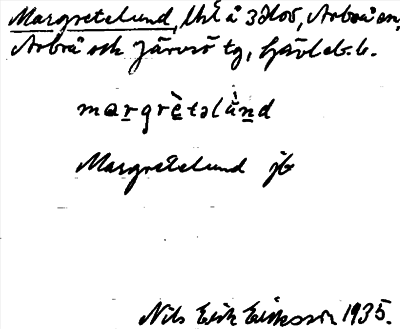 Margretelund, lht å 3 Flor, Arbrå sn,
Arbrå och Järvsö tg, Gävleb. l.
margrètəlùnd
Margretelund jb
Nils Erik Eriksson 1935.